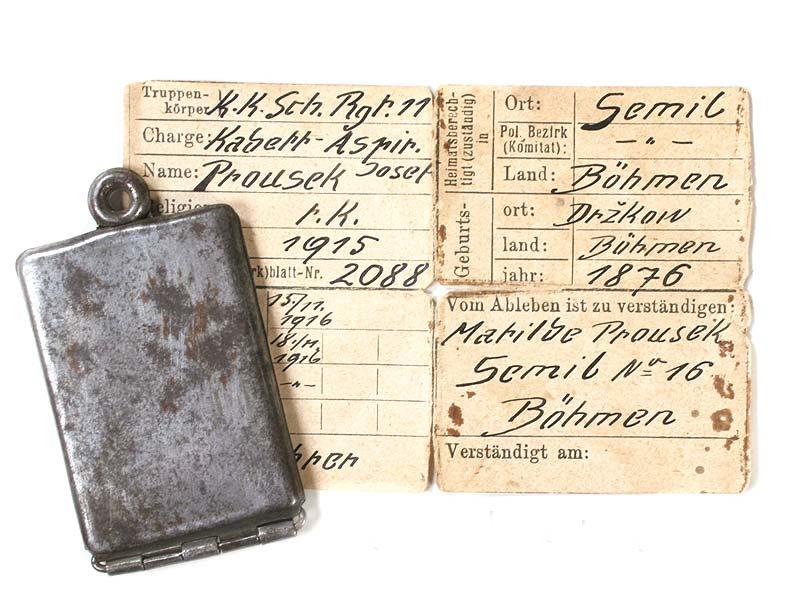 Truppen-
körper K.K. Sch. Rgt. 11
Charge: Kadett-Aspir.
Name: Prousek Josef
r.K.
1915
blatt-Nr. 2088
15/11.
1916
1916
-"-
Heimatsberech-
tigt (zuständig)
in
Ort: Semil
Pol. Bezirk
(Komitat): -"-
Land: Böhmen
Geburts-
ort: Držkow
land: Böhmen
jahr: 1876
Vom Ableben ist zu verständigen:
Matilde Prousek
Semil Nr 16
Böhmen
Verständigt am: